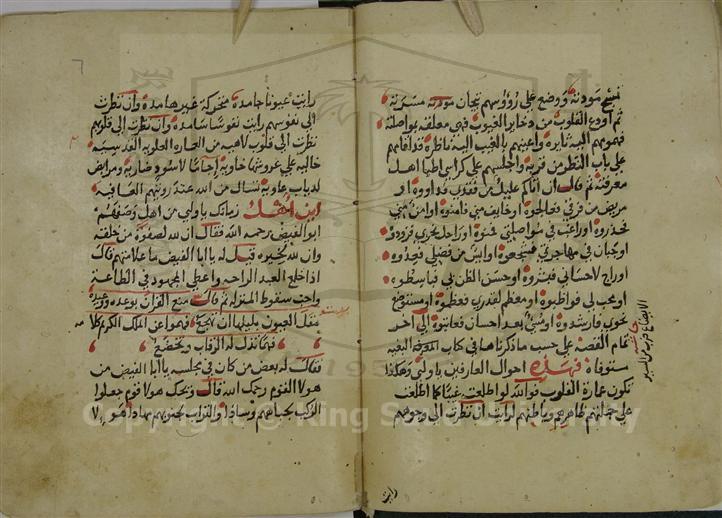 نسيج مودته ووضع على رؤوسهم تيجان مودته مسرته
ثم أودع القلوب من ذخاير الغيوب فهي معلقه بمواصلته
فهمومهم اليه ثايره واعينهم بالغيب اليه ناظره قد اقامهم
على باب النظر من قربه واجلسهم على كراسي اطبا اهل
معرفته ثم قال ان اتاكم عليل من فقدي فداووه او
مريض من فرقي فعالجوه او خايف مني فامنوه او امن مني
فحذروه او راغب في مواصلتي فمنوه او راحل نحوي فزودوه
او جبان في متاجرتي فشجعوه او ايس من فضلي فعدوه
او راج لاحساني فبشروه او حسن الظن بي فباسطوه
او محب لي فواظبوه او معظم لقدري فعظموه او مستوضح
نحوي فارشدوه او مسئ بعد احسان فعاتبوه الى اخر
تمام القصة على حسب ما ذكرناها في كتاب البغيه
مستوفاة فهذه احوال العارفين يا ولي وهكذا
تكون عمارة القلوب فوالله لو اطلعت عيانا كما اطلعت
على جملتهم ظاهرهم وباطنهم لرايت ان نظرت الى وجوههم
رايت
رايت عيونا جامدة متحركة غير هامدة وان نظرت
الى نفوسهم رايت نفوسا شامدة وان نظرت الى قلوبهم
نظرت الى قلوب لاهيه من العماره العلويه القدسيه
خاليه على عروشها خاويه اجاما لاسود ضاريه ومرابض
لذياب عاويه نسال من الله عند رويتهم العافيه
اين اهل زمانك يا ولي من اهل وصفهم
ابو الفيض رحمه الله فقال ان لله لصفوة من خلقه
وان لله لخيره قيل له يا ابا الفيض ما علامتهم قال
اذا خلع العبد الراحه واعطى المجهود في الطاعة
واحب سقوط المنزله ثم قال منع القران بوعده ووعيده
مقل العيون بليلها ان تهجع فهموا عن الملك الكريم كلامه
فهما تذل له الرقاب وتخضع
فقال له بعض من كان في مجلسه يا ابا الفيض من
هولاء القوم رحمك الله قال ويحك هولا قوم جعلوا
الركب لجباههم وسادا والتراب لجنوبهم مهادا هولا